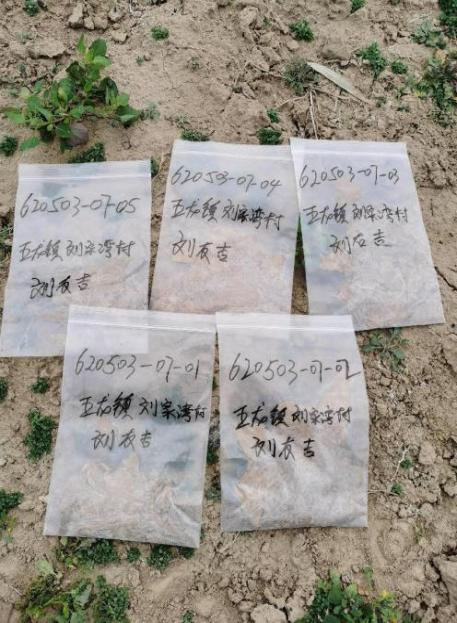 620503-07-05
五龙镇刘家湾村
刘有吉
620503-07-04
五龙镇刘家湾村
刘有吉
620503-07-03
五龙镇刘家湾村
刘有吉
620503-07-01
五龙镇刘家湾村
刘有吉
620503-07-02
五龙镇刘家湾村
刘有吉